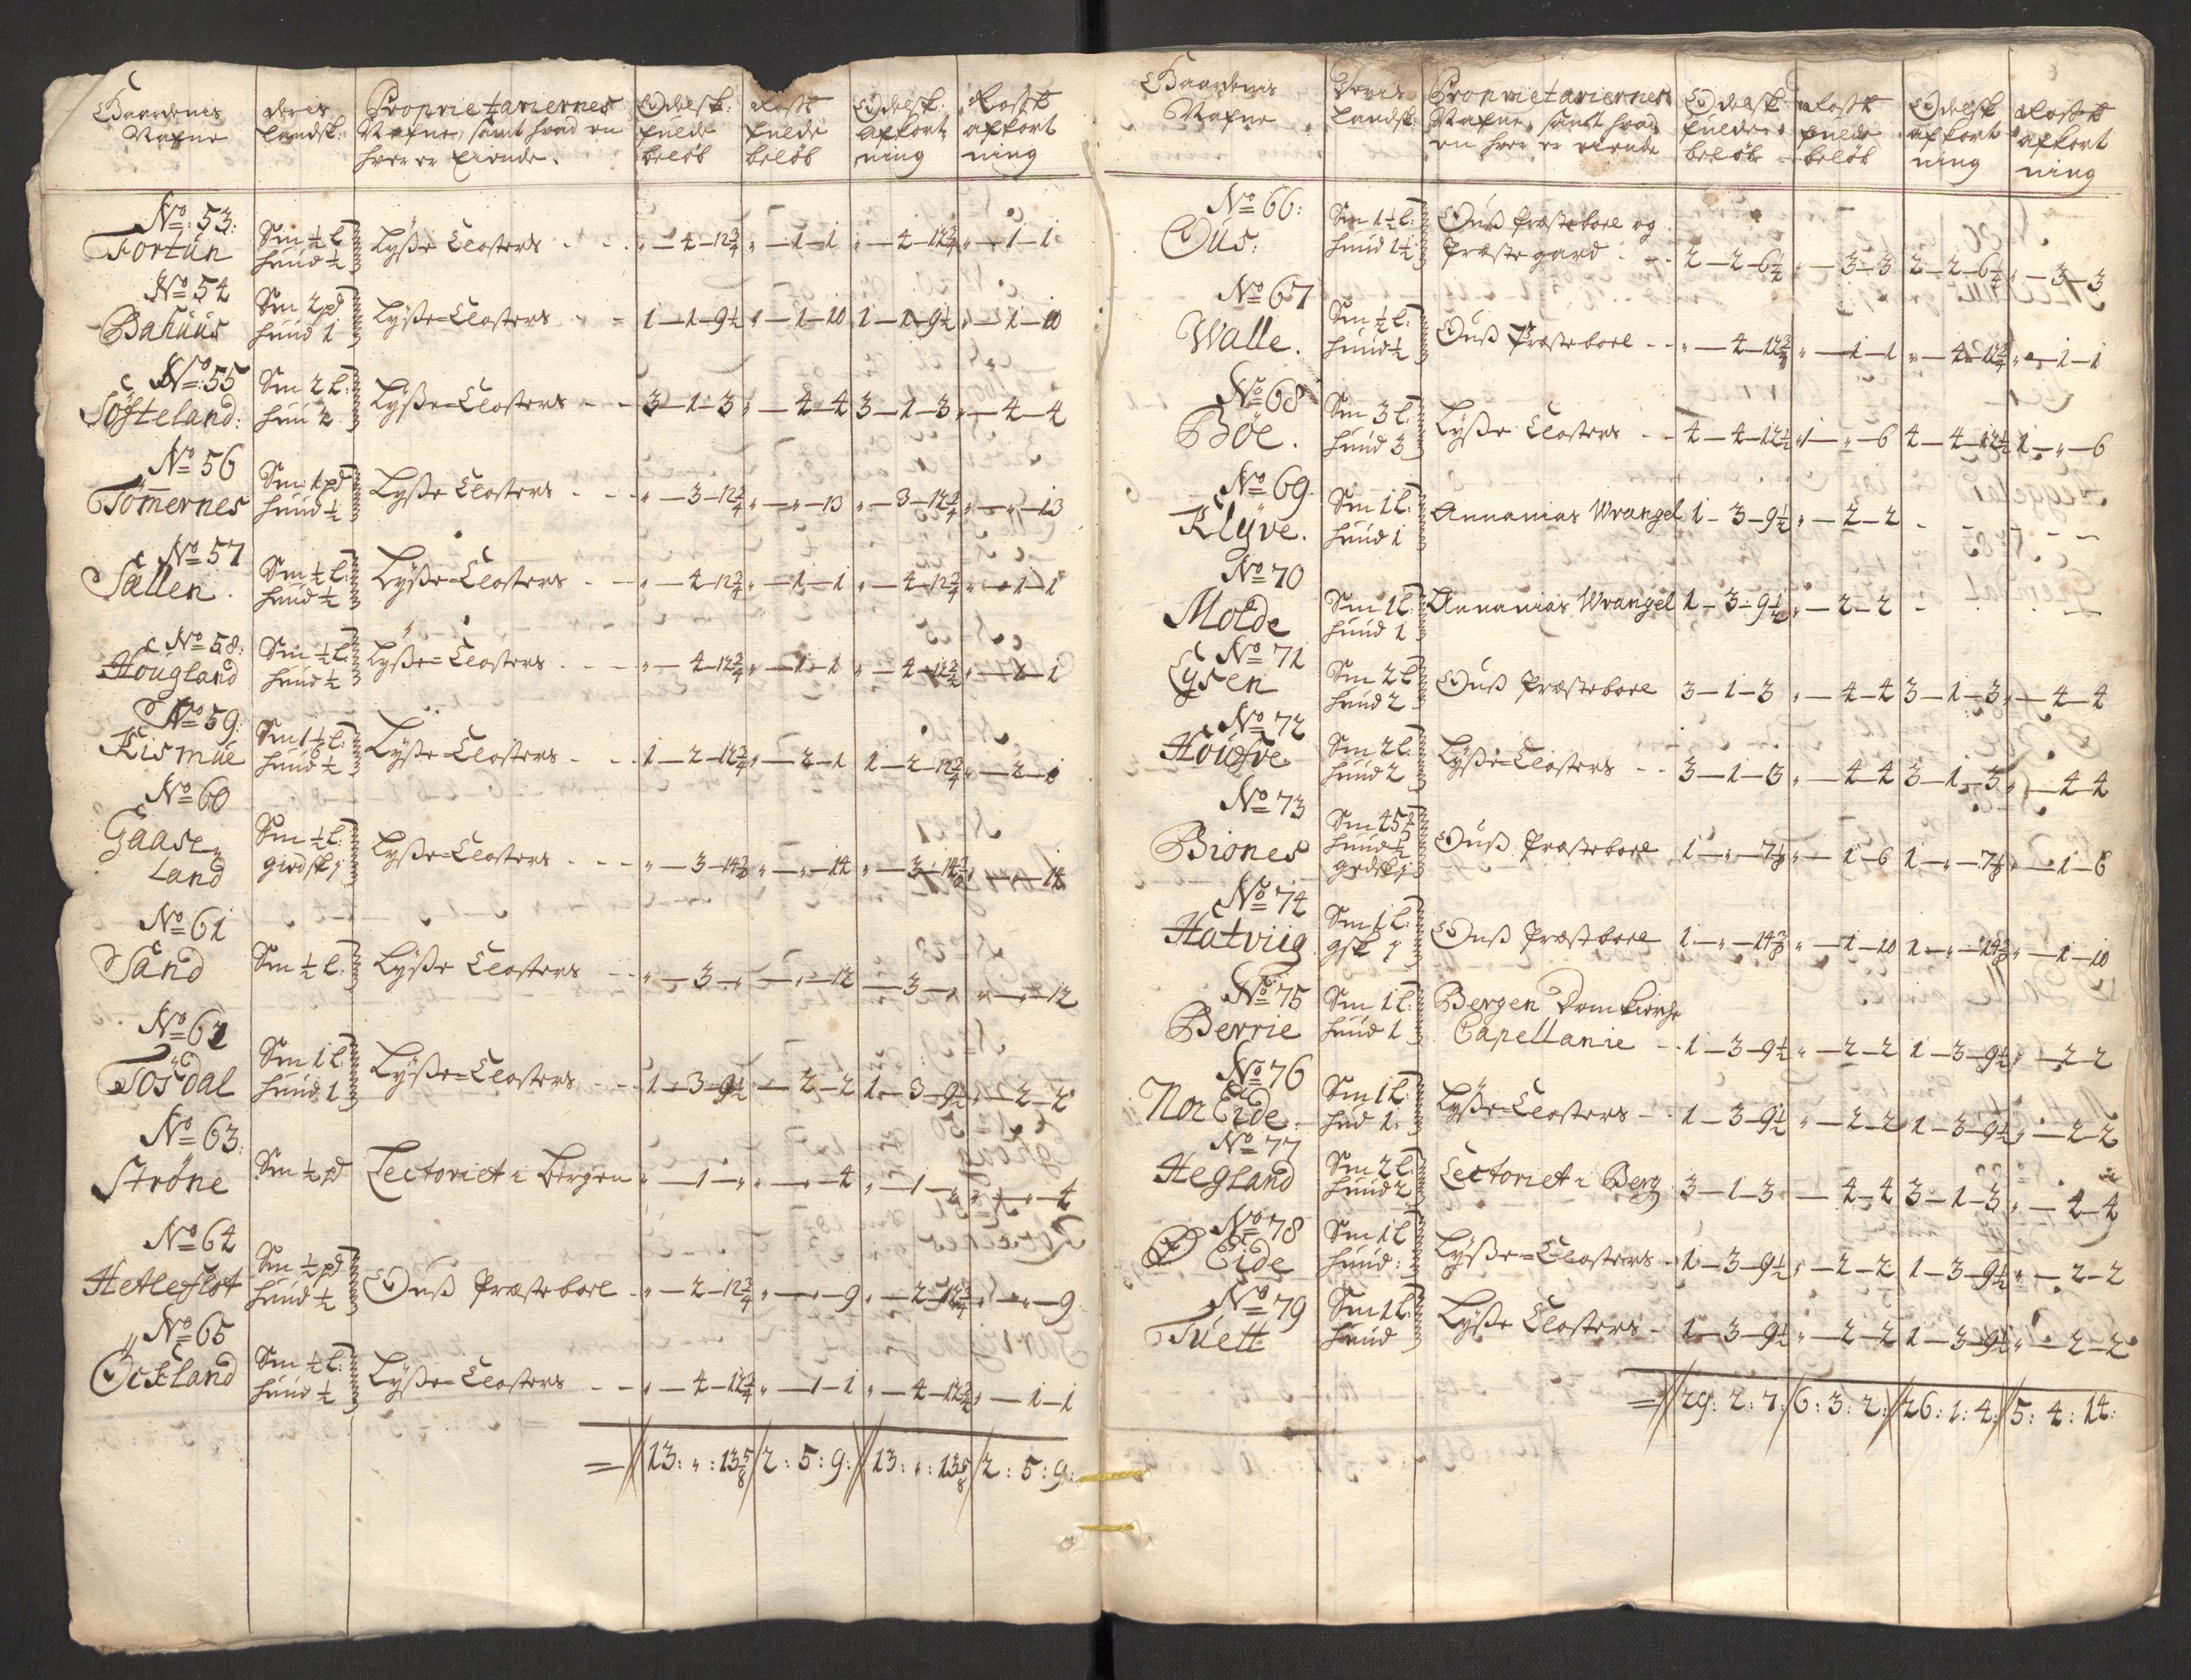 Gaardenis Nafne | deris Landsk: | Proprietariernes Nafne, samt hvad en hver er Eiende. | Odelsk: fulde beløb | Rostt fulde beløb | Odelsk: affort ning | Rostt affort ning
No 53: Fortun | Sm ½ l: huud ½ | Lyße Closters | „ — 4 — 12¾ | „ — 1 — 1 | „ — 4 — 12¾ | „ — 1 — 1
No 54 Bahuus | Sm 2 pd huud 1 | Lyße=Closters | 1 — 1 — 9½ | „ — 1 — 10 | 1 — 1 — 9½ | „ — 1 — 10
No 55 Söfteland: | Sm 2 l: huu 2 | Lyße=Closters | 3 — 1 — 3 | „ — 4 — 4 | 3 — 1 — 3 | „ — 4 — 4
No 56 Tömernes | Sm 1 pd huud ½ | Lyße Closters | „ — 3 — 12¾ | „ — „ — 13 | „ — 3 — 12¾ | „ — „ — 13
No 57 Sællen. | Sm ½ l: huud ½ | Lyße=Closters | „ — 4 — 12¾ | „ — 1 — 1 | „ — 4 — 12¾ | „ — 1 — 1
No 58: Hougland | Sm ½ l: huud ½ | Lyße=Closters | „ — 4 — 12¾ | „ — 1 — 1 | „ — 4 — 12¾ | „ — 1 — 1
No 59: Kismue | Sm 1½ l: huud ½ | Lyße=Closters | 1 — 2 — 12¾ | „ — 2 — 1 | 1 — 2 — 12¾ | „ — 2 — 1
No 60 Gaase Land | Sm ½ l: giedsk j | Lyße=Closters | „ — 3 — 14⅜ | „ — „ — 14 | „ — 3 — 14⅜ | „ — „ — 14
No 61 Sand | Sm ½ l: | Lyße Closters | „ — 3 — „ | „ — „ — 12 | „ — 3 — „ | „ — „ — 12
No 62 Tösdal | Sm 1 l: huud 1 | Lyße=Closters | 1 — 3 — 9½ | „ — 2 — 2 | 1 — 3 — 9½ | „ — 2 — 2
No 63: Ströne | Sm ½ pd | Lectoriet i Bergen | „ — 1 — „ | „ — „ — 4 | „ — 1 — „ | „ — „ — 4
No 64 Hetleflot | Sm ½ pd huud ½ | Ouß Præstebol | „ — 2 — 12¾ | „ — „ — 9 | „ — 2 — 12¾ | „ — „ — 9
No 65 Öckland | Sm ½ l: huud ½ | Lyße=Closters | „ — 4 — 12¾ | „ — 1 — 1 | „ — 4 — 12¾ | „ — 1 — 1
= 13: „ : 13⅝ | 2 : 5 : 9: | 13: „ : 13⅝ | 2 : 5 : 9:
Gaardenis Nafne | Deris Landsk: | Proprietariernes Nafne, samt hvad en hver er eiende | Odelsk: fulde beløb | Rostt fulde beløb | Odelsk affort ning | Rostt affort ning
No 66: Ous: | Sm 1½ l: huud 1½ | Ouß Præstebol og Præstegard | 2 — 2 — 6½ | „ — 3 — 3 | 2 — 2 — 6½ | „ — 3 — 3
No 67 Walle. | Sm ½ l: huud ½ | Ouß Præstebol | „ — 4 — 12¾ | „ — 1 — 1 | „ — 4 — 12¾ | „ — 1 — 1
No 68 Böe. | Sm 3 l: huud 3 | Lyße Closters | 4 — 4 — 12½ | 1 — „ — 6 | 4 — 4 — 12½ | 1 — „ — 6
No 69 Klyve. | Sm 1 l: huud 1 | Annanias Wrangel | 1 — 3 — 9½ | „ — 2 — 2
No 70 Molde | Sm 1 l: huud 1 | Annanias Wrangel | 1 — 3 — 9½ | „ — 2 — 2
No 71 Lysen | Sm 2 l huud 2 | Ouß Præstebol | 3 — 1 — 3 | „ — 4 — 4 | 3 — 1 — 3 | „ — 4 — 4
No 72 Houfve | Sm 2 l: huud 2 | Lyße=Closters | 3 — 1 — 3 | „ — 4 — 4 | 3 — 1 — 3 | „ — 4 — 4
No 73 Biones | huud ½ gedsk j | Ouß Præstebol | 1 — „ — 7⅛ | „ — 1 — 6 | 1 — „ — 7⅛ | „ — 1 — 6
No 74 Hatviig | Sm 1 l: gsk j | Ouß Præstbol | 1 — „ — 14⅜ | „ — 1 — 10 | 1 — „ — 14⅜ | „ — 1 — 10
No 75 Berrie | Sm 1 l: huud 1 | Bergen Domkirche Capellanie | 1 — 3 — 9½ | „ — 2 — 2 | 1 — 3 — 9½ | „ — 2 — 2
No 76 Nor Eide. | Sm 1 l: hud 1: | Lyße=Closters | 1 — 3 — 9½ | „ — 2 — 2 | 1 — 3 — 9½ | „ — 2 — 2
No 77 Hegland | Sm 2 l: huud 2 | Lectoriet i Berg | 3 — 1 — 3 | — 4 — 4 | 3 — 1 — 3 | „ — 4 — 4
No 78 Eide | Sm 1 l huud: | Lyße=Closters | 1 — 3 — 9½ | „ — 2 — 2 | 1 — 3 — 9½ | „ — 2 — 2
No 79 Tuett | Sm 1 l: huud | Lyße Closters | 1 — 3 — 9½ | „ — 2 — 2 | 1 — 3 — 9½ | „ — 2 — 2
= 29: 2: 7: | 6: 3: 2: | 26: 1: 4: | 5: 4: 14: